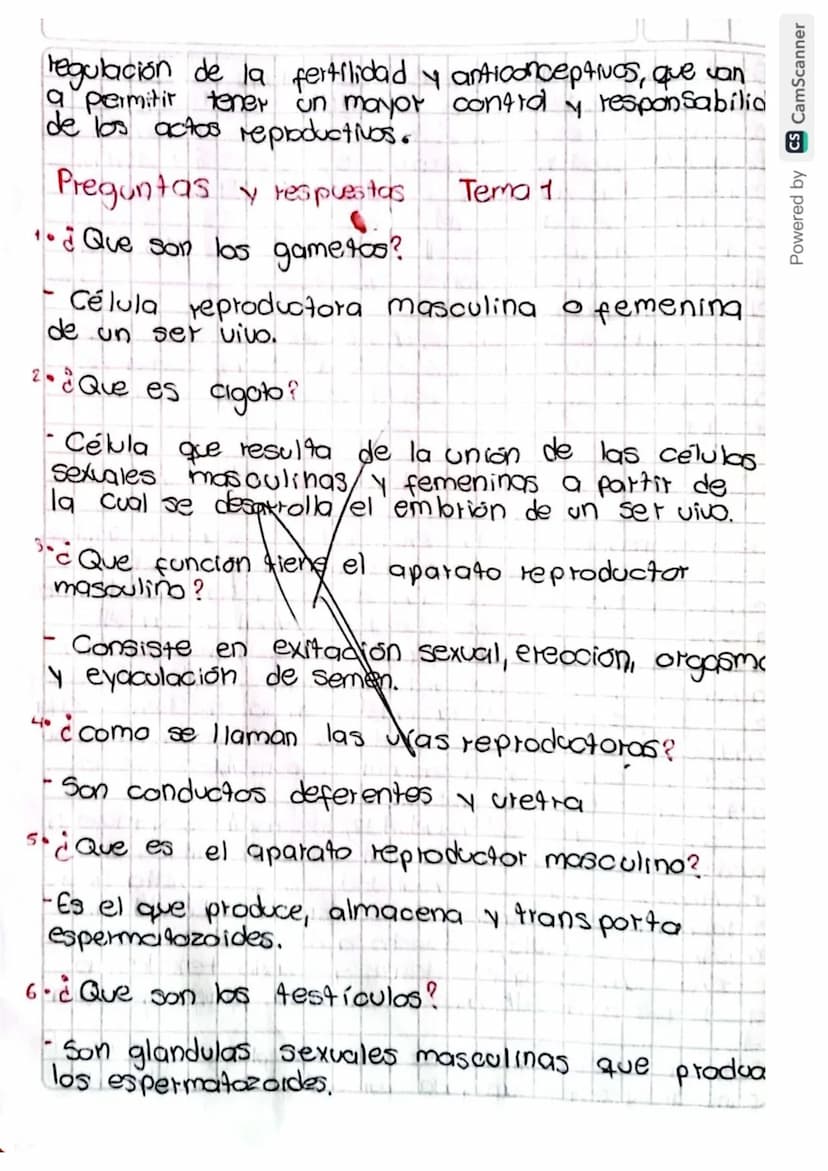 regulación de la fertilidad y anticonceptivos, que van
a permitir tener un mayor control y responsabilid
de los actos reproductivos.
Preguntas y respuestas Tema 1
1. ¿Que son los gametos?
- Célula reproductora masculina o femenina
de un ser vivo.
2. ¿Que es cigoto?
- Célula que resulta de la unión de las células
sexuales masculinas y femeninas a partir de
la cual se desarrolla el embrión de un ser vivo.
3. ¿Que función tiene el aparato reproductor
masculino?
- Consiste en exitación sexual, erección, orgasmo
y eyaculación de semen.
4. ¿como se llaman las vías reproductoras?
- Son conductos deferentes y uretra
5. ¿Que es el aparato reproductor masculino?
- Es el que produce, almacena y transporta
espermatozoides.
6. ¿Que son los testículos?
- Son glandulas sexuales masculinas que produc
los espermatozoides.
Powered by CS CamScanner